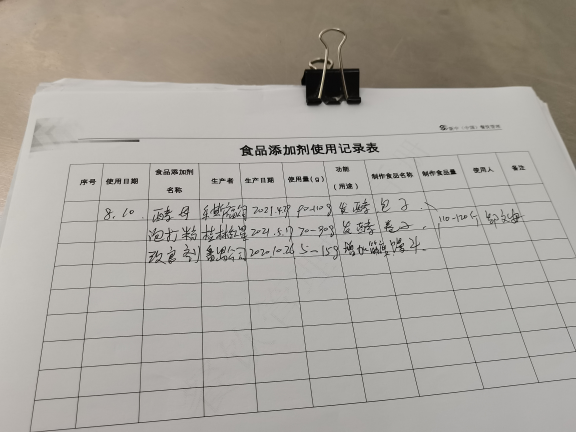 食品添加剂使用记录表
序号 使用日期 食品添加剂名称 生产者 生产日期 使用量(g) 功能(用途) 制作食品名称 制作食品量 使用人 备注
8.10. 酵母 2021.4.29 90-110g 发酵 包子、
泡打粉 桂林红星 2021.5.17 70-90g 发酵 卷子、 110-120个
改良剂 2020.10.26 5-15g 馒头.